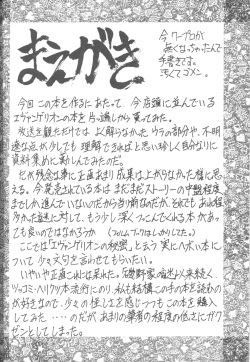 まえがき
今ワープロが
無くなっちゃたんで
手書きです。
汚くてゴメン。
今回この本を作るにあたって、今店頭に並んでいる
エヴァンゲリオンの本を片っ端しから買ってみた。
放送を観ただけでは、よく解らなかったウラの部分や、不明
達な点が少しでも理解できればと思い珍しく自分なりに
資料集めに勤しんでみたのだ。
だが残念な事に正直あまり成果は上がらなかった様に思
える。今発売されている本はまだまだストーリーの中盤程度
までしか進んでいないのだから当前なのだが、それでもあれ程
多かった謎に対して、もう少し深くつっこんでくれる本があっ
ても良いのではなかろうか(フィルムブックはしかりだした)。
ここでは「エヴァンゲリオンの秘密」と云う実にヘボい本に
ついて少々文句を言わせてもらいたい。
いやいや正直これには呆れた。
ツッコミ・ヘリクツ本流行にのり、私も結構この手の本を読むの
が好きなので、少々の怪しさを感じつつもこの本を購入
してみた・・・・のだが、あまりの筆者の程度の低さにガク
ゼンとしてしまった。